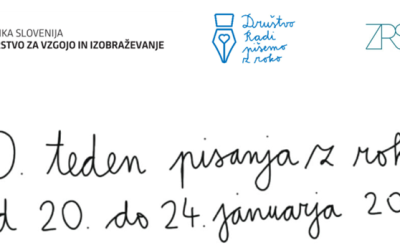 IKA SLOVENIJA
RSTVO ZA VZGOJO IN IZOBRAŽEVANJE
Društvo
Radi
pišemo
z roko
ZRS
0. teden pisanja z rok
d 20. do 24. januarja 20